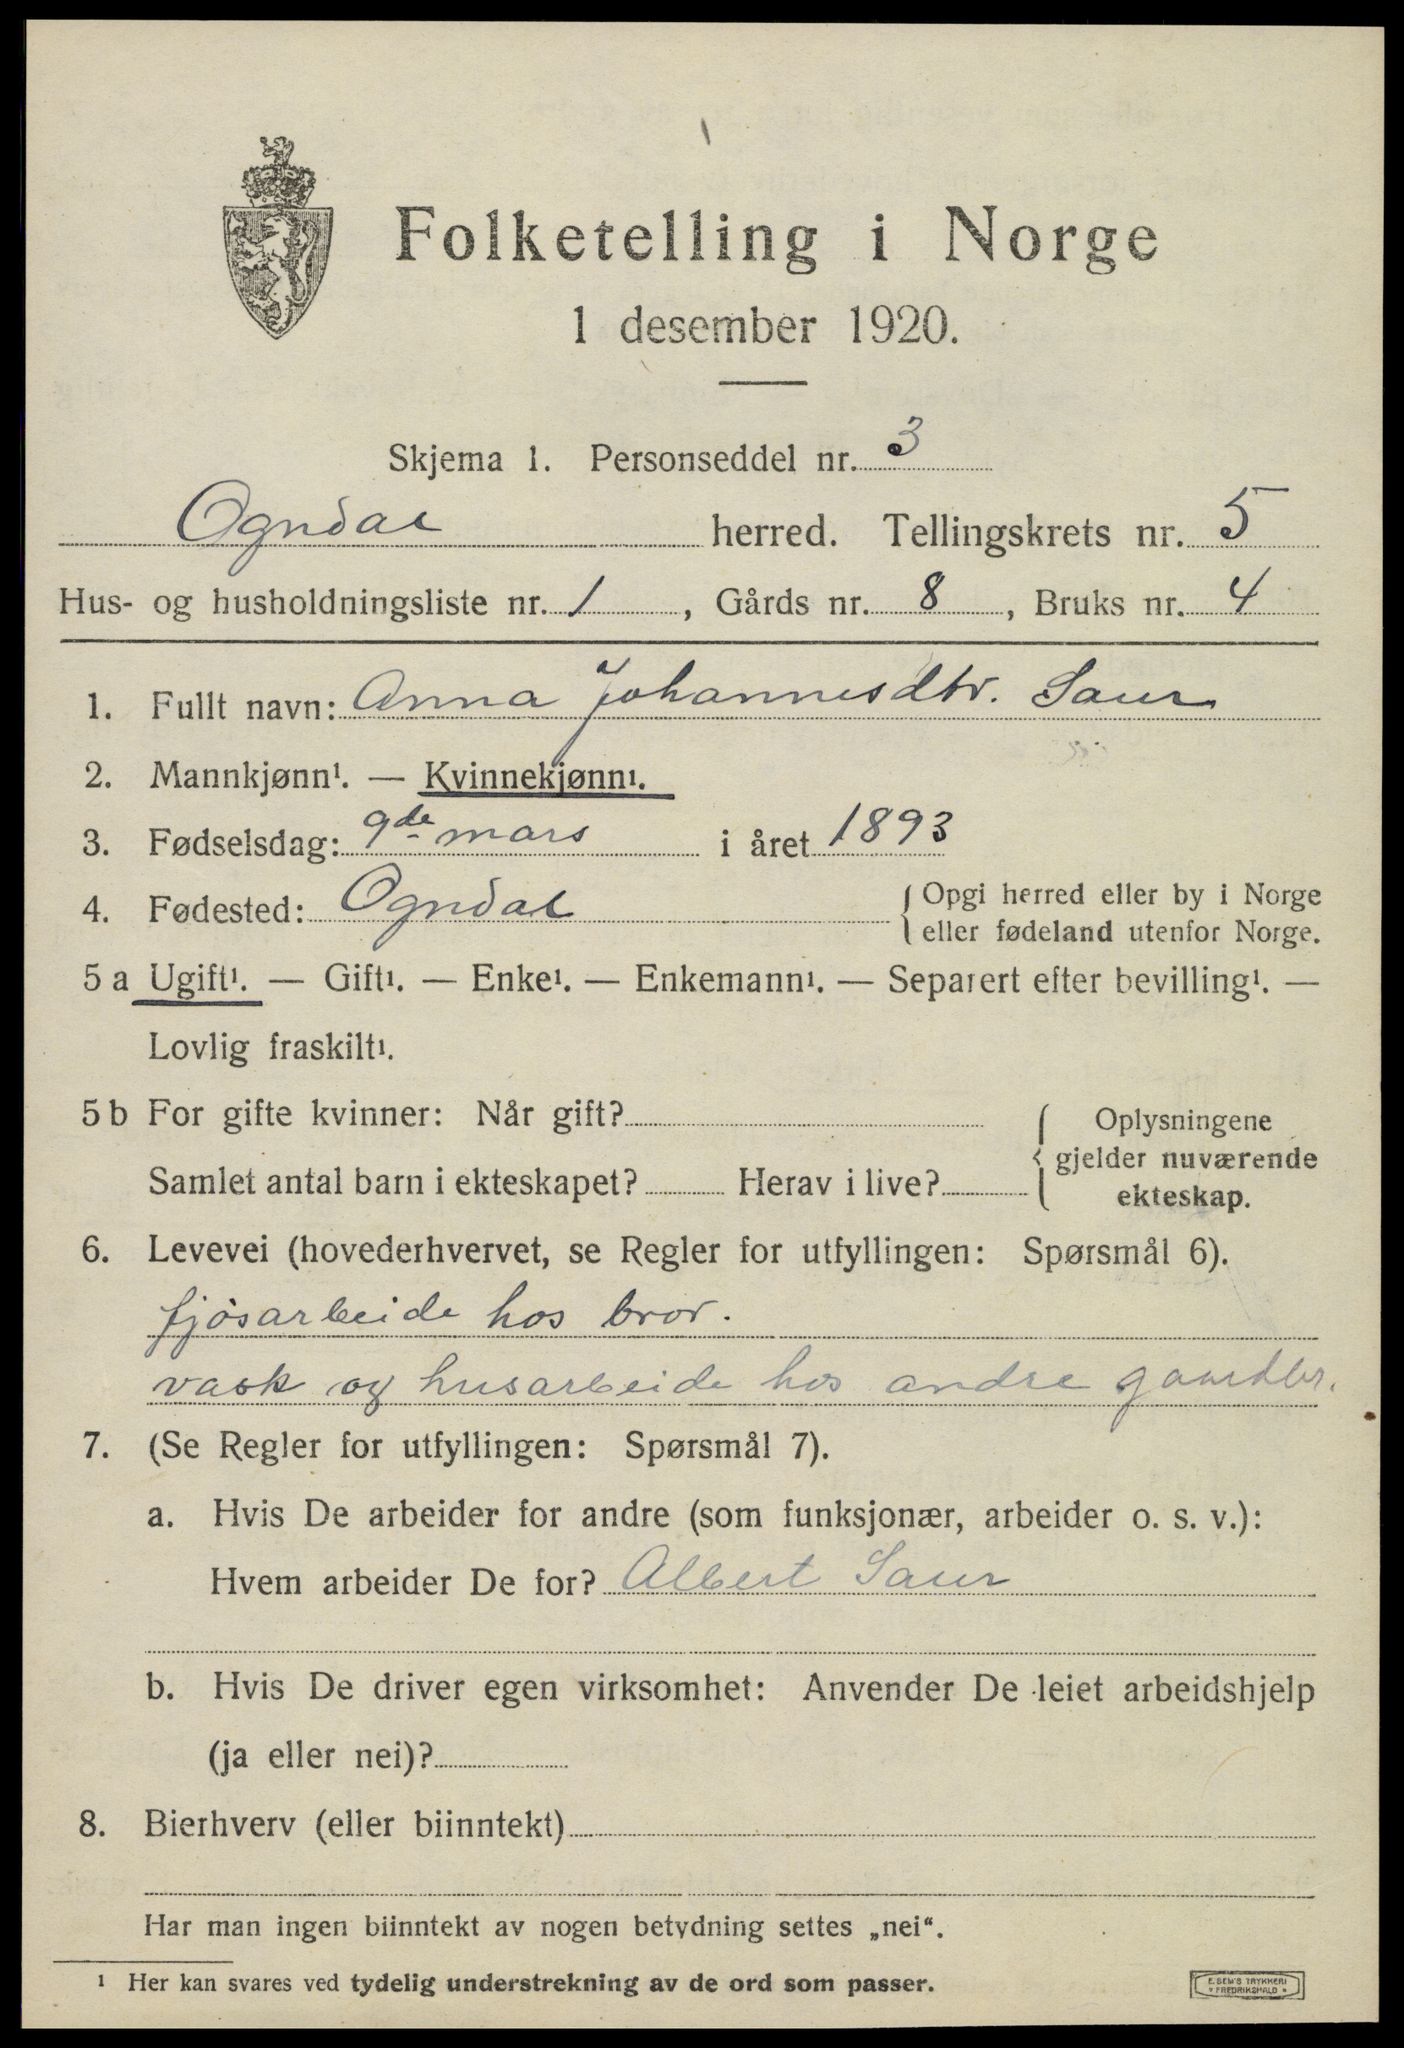 Folketelling i Norge
1 desember 1920.
Skjema 1. Personseddel nr. 3
Ogndal herred. Tellingskrets nr. 5
Hus- og husholdningsliste nr. 1, Gårds nr. 8, Bruks nr. 4
1. Fullt navn: Anna Johannesdtr. Saur
2. Mannkjønn¹. — Kvinnekjønn¹.
3. Fødselsdag: 9de mars i året 1893
4. Fødested: Ogndal { Opgi herred eller by i Norge
eller fødeland utenfor Norge.
5 a Ugift¹. — Gift¹. — Enke¹. — Enkemann¹. — Separert efter bevilling¹. —
Lovlig fraskilt¹.
5 b For gifte kvinner: Når gift? { Oplysningene
gjelder nuværende
Samlet antal barn i ekteskapet? Herav i live?
ekteskap.
6. Levevei (hovederhvervet, se Regler for utfyllingen: Spørsmål 6).
fjøsarbeide hos bror.
vask og husarbeide hos andre gaardbr.
7. (Se Regler for utfyllingen: Spørsmål 7).
a. Hvis De arbeider for andre (som funksjonær, arbeider o. s. v.):
Hvem arbeider De for? Albert Saur
b. Hvis De driver egen virksomhet: Anvender De leiet arbeidshjelp
(ja eller nei)?
8. Bierhverv (eller biinntekt)
Har man ingen biinntekt av nogen betydning settes „nei“.
¹ Her kan svares ved tydelig understrekning av de ord som passer.
E. SEM'S TRYKKERI
FREDRIKSHALD